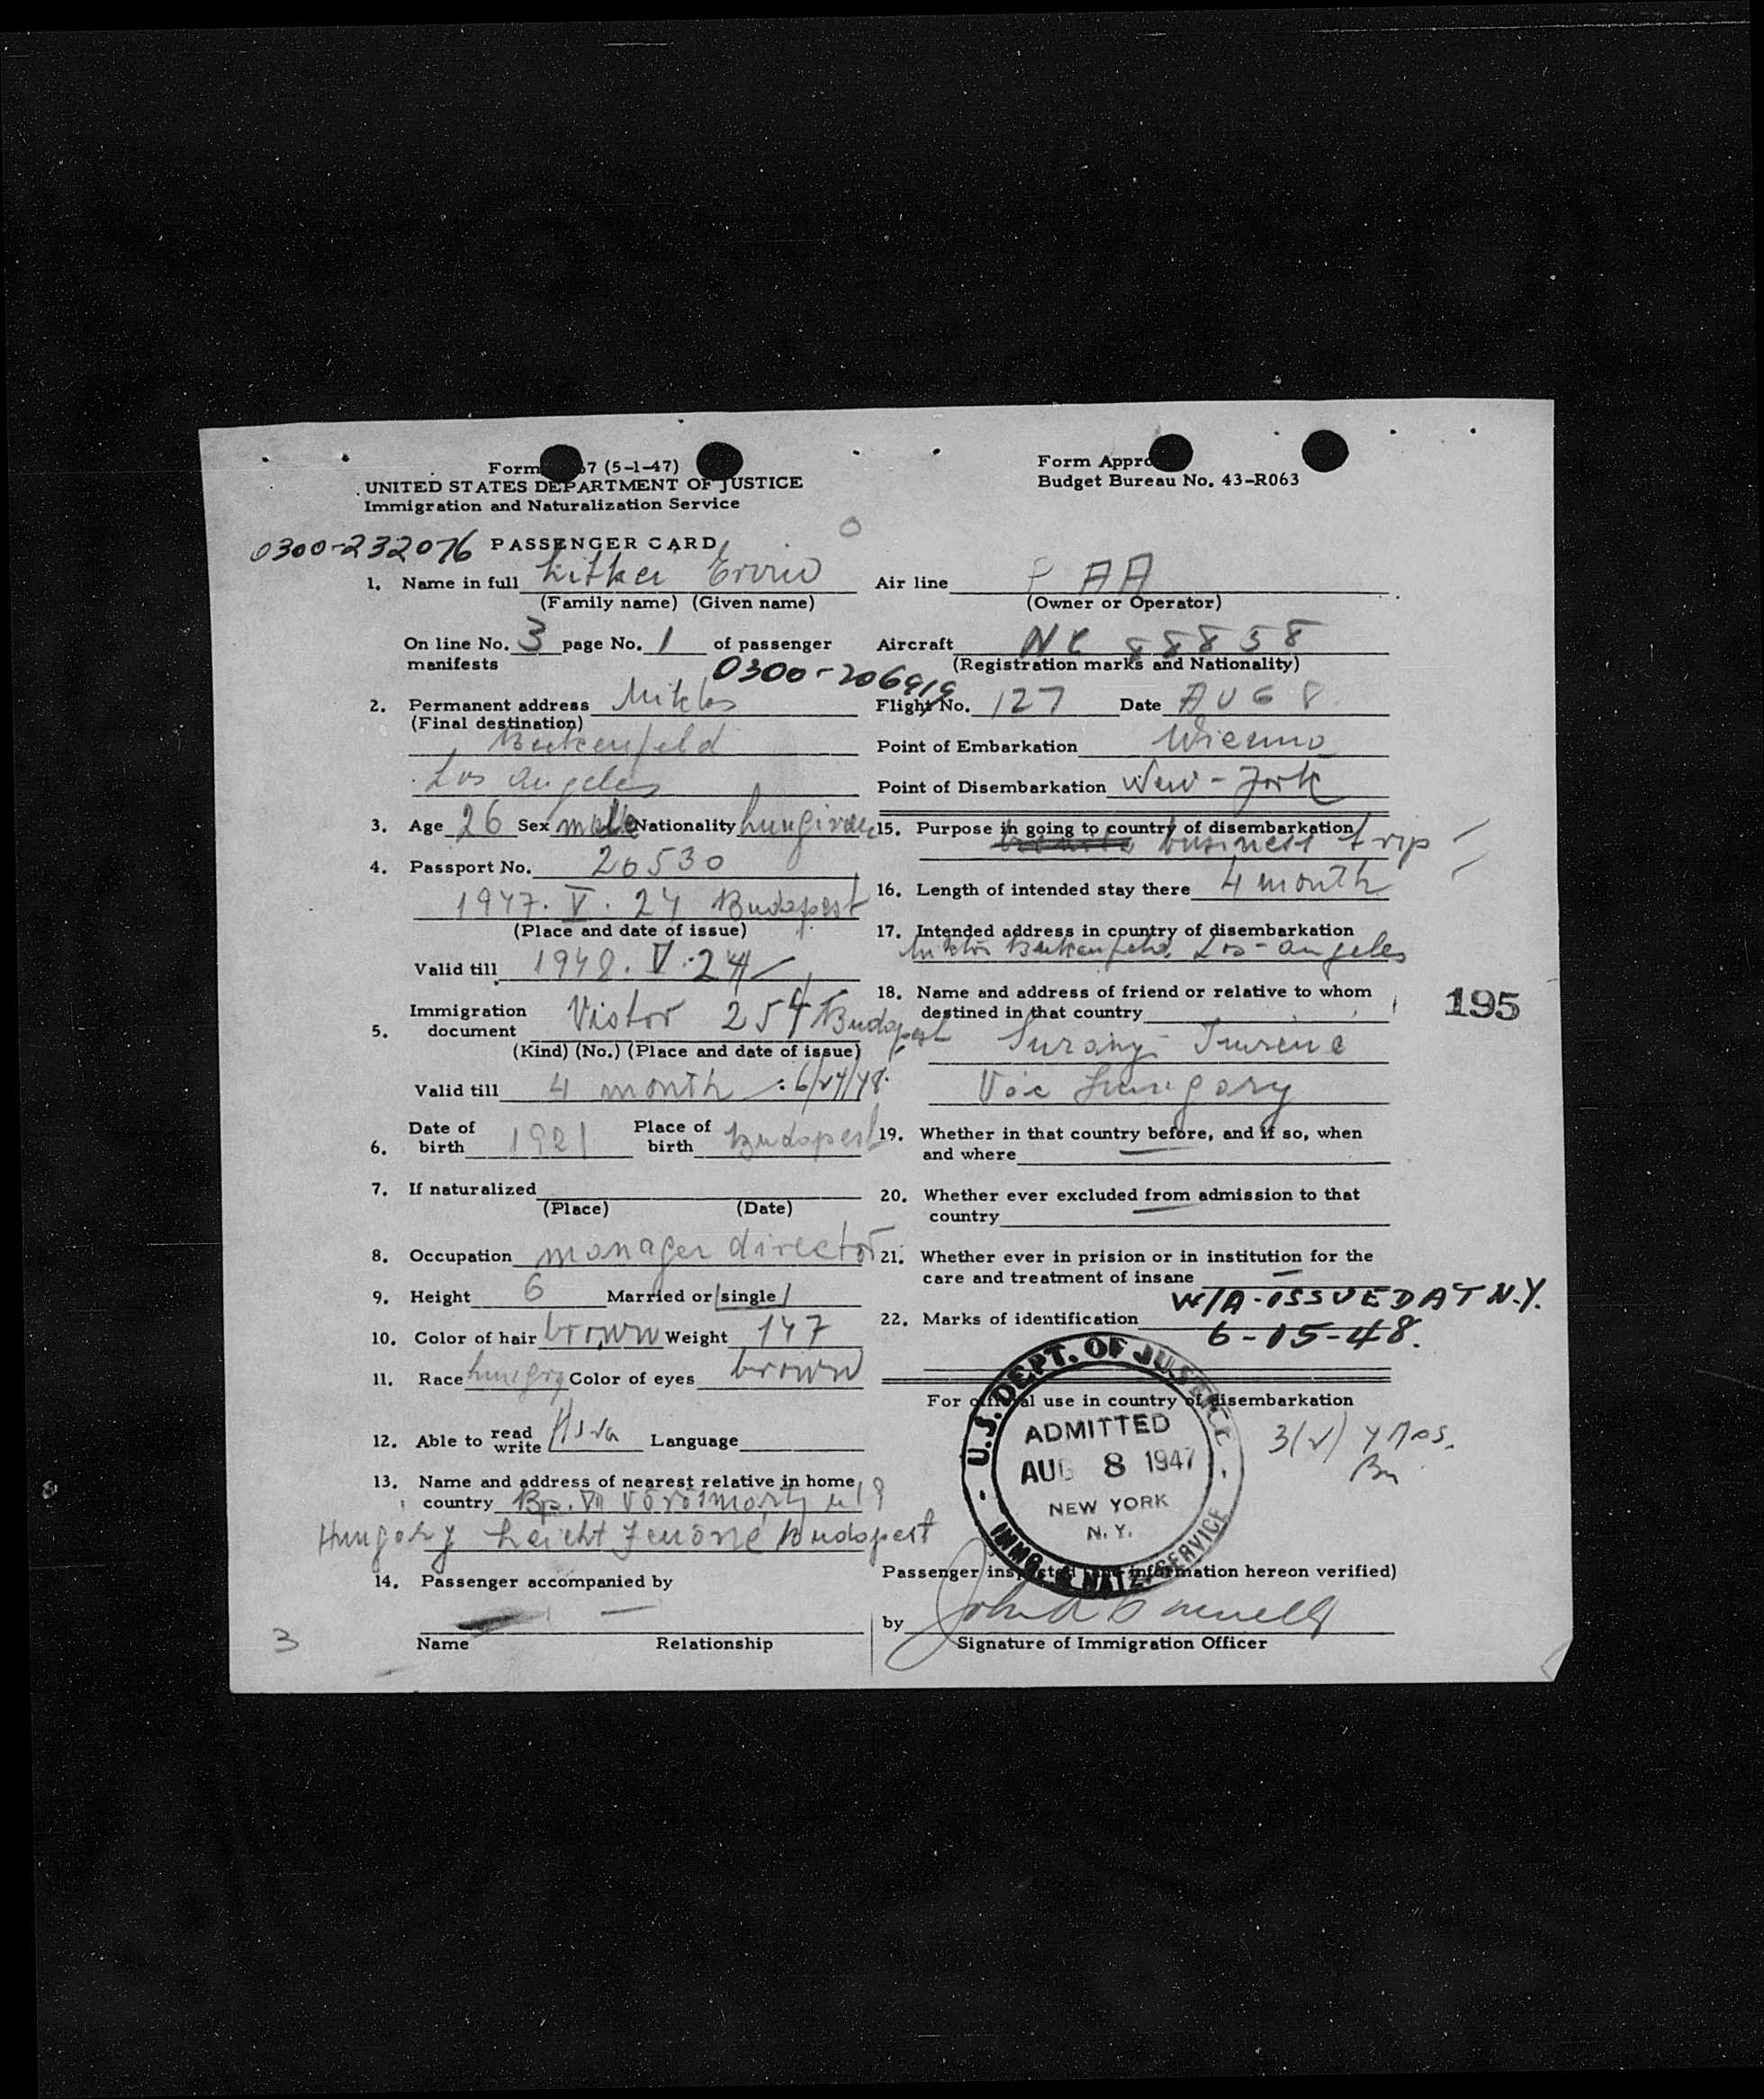 Form 67 (5-1-47)
UNITED STATES DEPARTMENT OF JUSTICE
Immigration and Naturalization Service
Form Appro
Budget Bureau No. 43-R063
0300-232076 PASSENGER CARD
1. Name in full Ervin
(Family name) (Given name)
On line No. 3 page No. 1 of passenger
manifests
0300-206919
2. Permanent address Miklos
(Final destination)
Los Angeles
3. Age 26 Sex male Nationality
4. Passport No. 26530
1947. V. 24 Budapest
(Place and date of issue)
Valid till 1948. V. 24
5. Immigration document Vistor 254 Budapest
(Kind) (No.) (Place and date of issue)
Valid till 4 month : 6/24/48.
6. Date of birth 1921 Place of birth Budapest
7. If naturalized
(Place) (Date)
8. Occupation manager director
9. Height 6 Married or single
10. Color of hair brown Weight 147
11. Race Color of eyes brown
12. Able to read write Language
13. Name and address of nearest relative in home
country Bp. VI
Hungary Leicht Jenőné Budapest
14. Passenger accompanied by
—
Name Relationship
3
Air line PAA
(Owner or Operator)
Aircraft NC 88858
(Registration marks and Nationality)
Flight No. 127 Date AUG 8
Point of Embarkation Wienna
Point of Disembarkation New-York
15. Purpose in going to country of disembarkation
business trip
16. Length of intended stay there 4 month
17. Intended address in country of disembarkation
Los-angeles
18. Name and address of friend or relative to whom
destined in that country
Vác Hungary
19. Whether in that country before, and if so, when
and where
20. Whether ever excluded from admission to that
country
21. Whether ever in prision or in institution for the
care and treatment of insane —
W/A-ISSUED AT N.Y.
22. Marks of identification 6-15-48.
For official use in country of disembarkation
U.S. DEPT. OF JUSTICE
ADMITTED
AUG 8 1947
NEW YORK
N.Y.
IMMG. & NATZ. SERVICE
Passenger inspected information hereon verified)
by
Signature of Immigration Officer
195